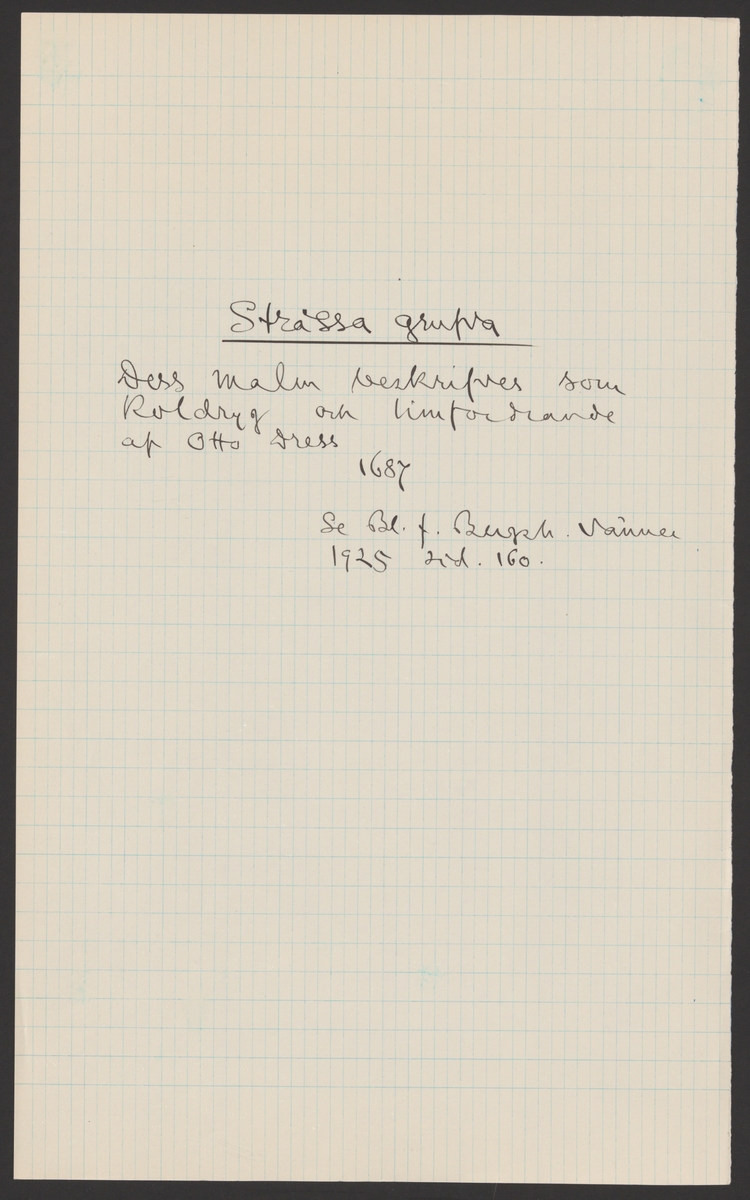 Stråssa grufva
Dess malm beskrifves som
Koldryg och limfordrande
af Otto Dress
1687
Se Bl. f. Bergsh. Vänner
1925 sid. 160.